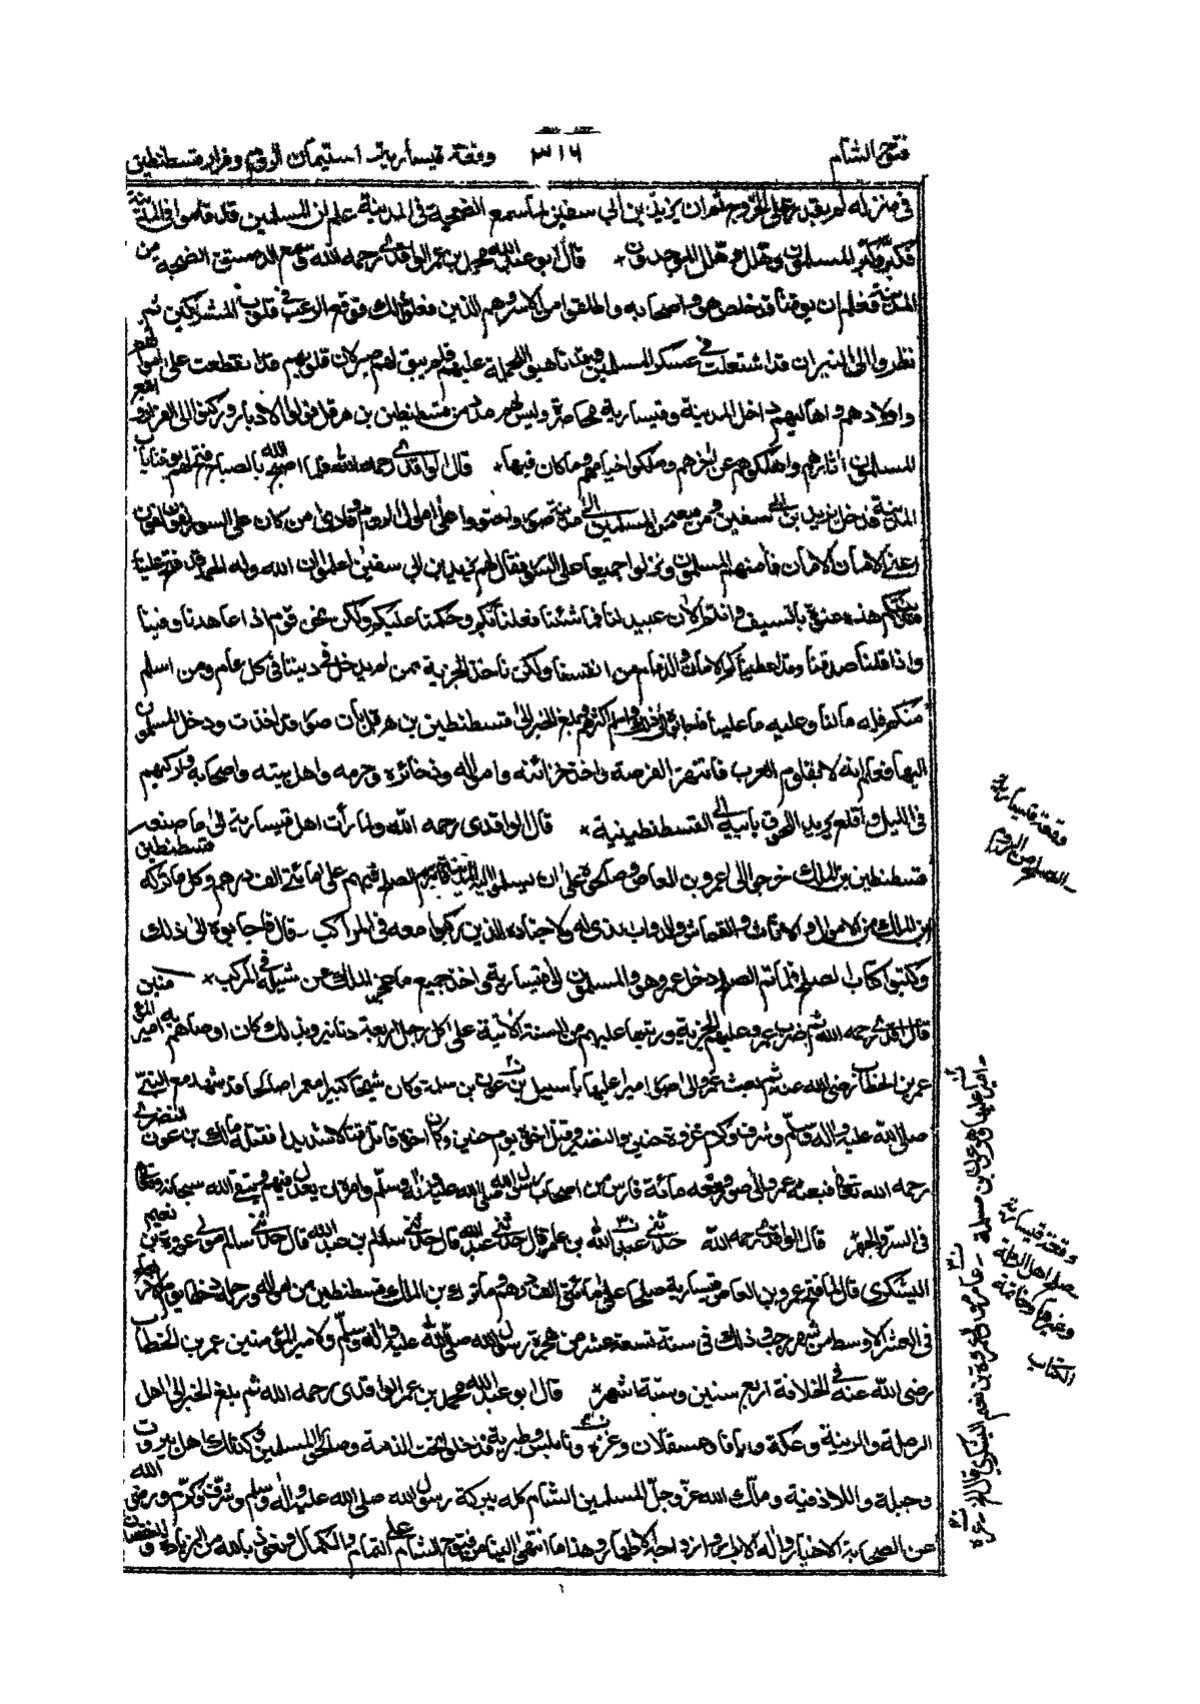 فتوح الشام
٣١٦
وقعة قيسارية استيمان الروم وفرار قسطنطين
في منزله لم يقدر على الخروج ثم ان يزيد بن ابي سفين لما سمع الضجة في المدينة علم ان المسلمين قد قاموا في المدينة
فكبر وكبر المسلمون وهلل وهلل الموحدون * قال ابو عبد الله محمد بن عمر الواقدي رحمه الله وسمع الدمستق الضجة من
المدينة فعلم ان يوقنا قد خلص هو واصحابه واطلقوا من الاسر وهم الذين فعلوا ذلك فوقع الرعب في قلوب المشركين ثم
نظروا الى النيران قد اشتعلت في عسكر المسلمين وقد تاهبوا للحملة عليهم فلم يبق لهم صبر لان قلوبهم قد انقطعت على اموالهم
واولادهم واهاليهم داخل المدينة وقيسارية محاصرة وليس لهم مدد من قسطنطين بن هرقل فولوا الادبار وركنوا الى الفرار وتبع
المسلمون اثارهم واهلكوهم عن اخرهم وملكوا خيامهم وما كان فيها * قال الواقدي رحمه الله فلما اصبح الله بالصباح فتح لهم يوقنا باب
المدينة فدخل يزيد بن ابي سفين ومن معه من المسلمين الى مدينة صور واحتووا على اموال الروم ونادى من كان على السور لفون لفون
يعني الامان الامان فأمنهم المسلمون ونزلوا جميعا على السور فقال لهم يزيد بن ابي سفين اعلموا ان الله وله الحمد قد فتح علينا
مدينتكم هذه عنوة بالسيف وانتم الان عبيد لنا فما شئنا فعلنا بكم وحكمنا عليكم ولكن نحن قوم اذا عاهدنا وفينا
واذا قلنا صدقنا وقد اعطيناكم الامان والذمام من انفسنا ولكن نأخذ الجزية ممن لم يدخل في ديننا في كل عام ومن اسلم
منكم فله ما لنا وعليه ما علينا فلما واسلم اكثرهم وبلغ الخبر الى قسطنطين بن هرقل بأن صور قد اخذت ودخل المسلمون
اليها فعلم انه لا يقاوم العرب فانتهز الفرصة واخذ خزائنه وامواله وذخائره وحرمه واهل بيته واصحابه وركبهم
في الليل واقلع يريد اللحوق بابيه الى القسطنطينية * قال الواقدي رحمه الله ولما رأت اهل قيسارية الى ما صنع
قسطنطين بن الملك خرجوا الى عمرو بن العاص وصالحوه على ان يسلموا اليه المدينة فتم الصلح فيهم على مأئتي الف درهم وكل ما تركه
ابن الملك من الاموال والاثاث والقماش والدواب له ولاجناده الذين ركبوا معه في المراكب ـ قال فاجابوه الى ذلك
وكتبوا كتاب الصلح فلما تم الصلح دخل عمرو هو والمسلمون الى قيسارية اخذ جميع ما عجز الملك عن شيله في المركب *
قال الواقدي رحمه الله ثم ضرب عمرو عليهم الجزية ورتبها عليهم من السنة الاتية على كل رجل اربعة دنانير وبذلك كان اوصاهم به امير المؤمنين
عمر بن الخطاب رضي الله عنه ثم بعث عمرو الى صور اميرا عليها ياسيل بن عون بن سلمة وكان شيخا كبيرا معمرا صالحا قد شهد مع النبي
صلى الله عليه واله وسلم وشرف وكرم غزوة حنين والنضير وقتل اخوه يوم حنين وكان اخوه قاتل قتالا شديدا فقتله مالك بن عوف النضري
رحمه الله تعالى فبعثه عمرو الى صور ومعه مائة فارس من اصحاب رسول الله صلى الله عليه واله وسلم وامره ان يعدل فيهم ويتقي الله سبحانه وتعالى
في السر والجهر قال الواقدي رحمه الله حدثني عبد الله بن عامر قال حدثني عبد الله قال حدثني سالم بن عبد الله قال حدثني سالم مولى عروة بن نعيم
اليشكري قال لما فتح عمرو بن العاص قيسارية صلحا على مأئتي الف درهم وما ترك بن الملك قسطنطين من امواله ورحله دخلها يوم الاربعاء
في العشر الاوسط من شهر رجب وذلك في سنة تسعة عشر من هجرة رسول الله صلى الله عليه واله وسلم ولامير المؤمنين عمر بن الخطاب
رضي الله عنه في الخلافة اربع سنين وستة اشهر * قال ابو عبد الله محمد بن عمر الواقدي رحمه الله ثم بلغ الخبر الى اهل
الرملة والرينية وعكة ويافا وعسقلان وغزة ونابلس وطبرية فدخلوا تحت الذمة وصالحوا المسلمين وكذلك اهل بيروت
وجبلة واللاذقية وملك الله عز وجل المسلمين الشام كله ببركة رسول الله صلى الله عليه واله وسلم وشرف وكرم ورضي الله
عن الصحابة الاخيار واله الابرار وازواجه الاطهار وهذا ما انتهى الينا من فتوح الشام على التمام والكمال ونعوذ بالله من الزيادة والنقصان
وقعة قيسارية
الصلح من الروم
وقعة قيسارية
صلح اهل الرملة
وغيرها وخاتمة
الكتاب